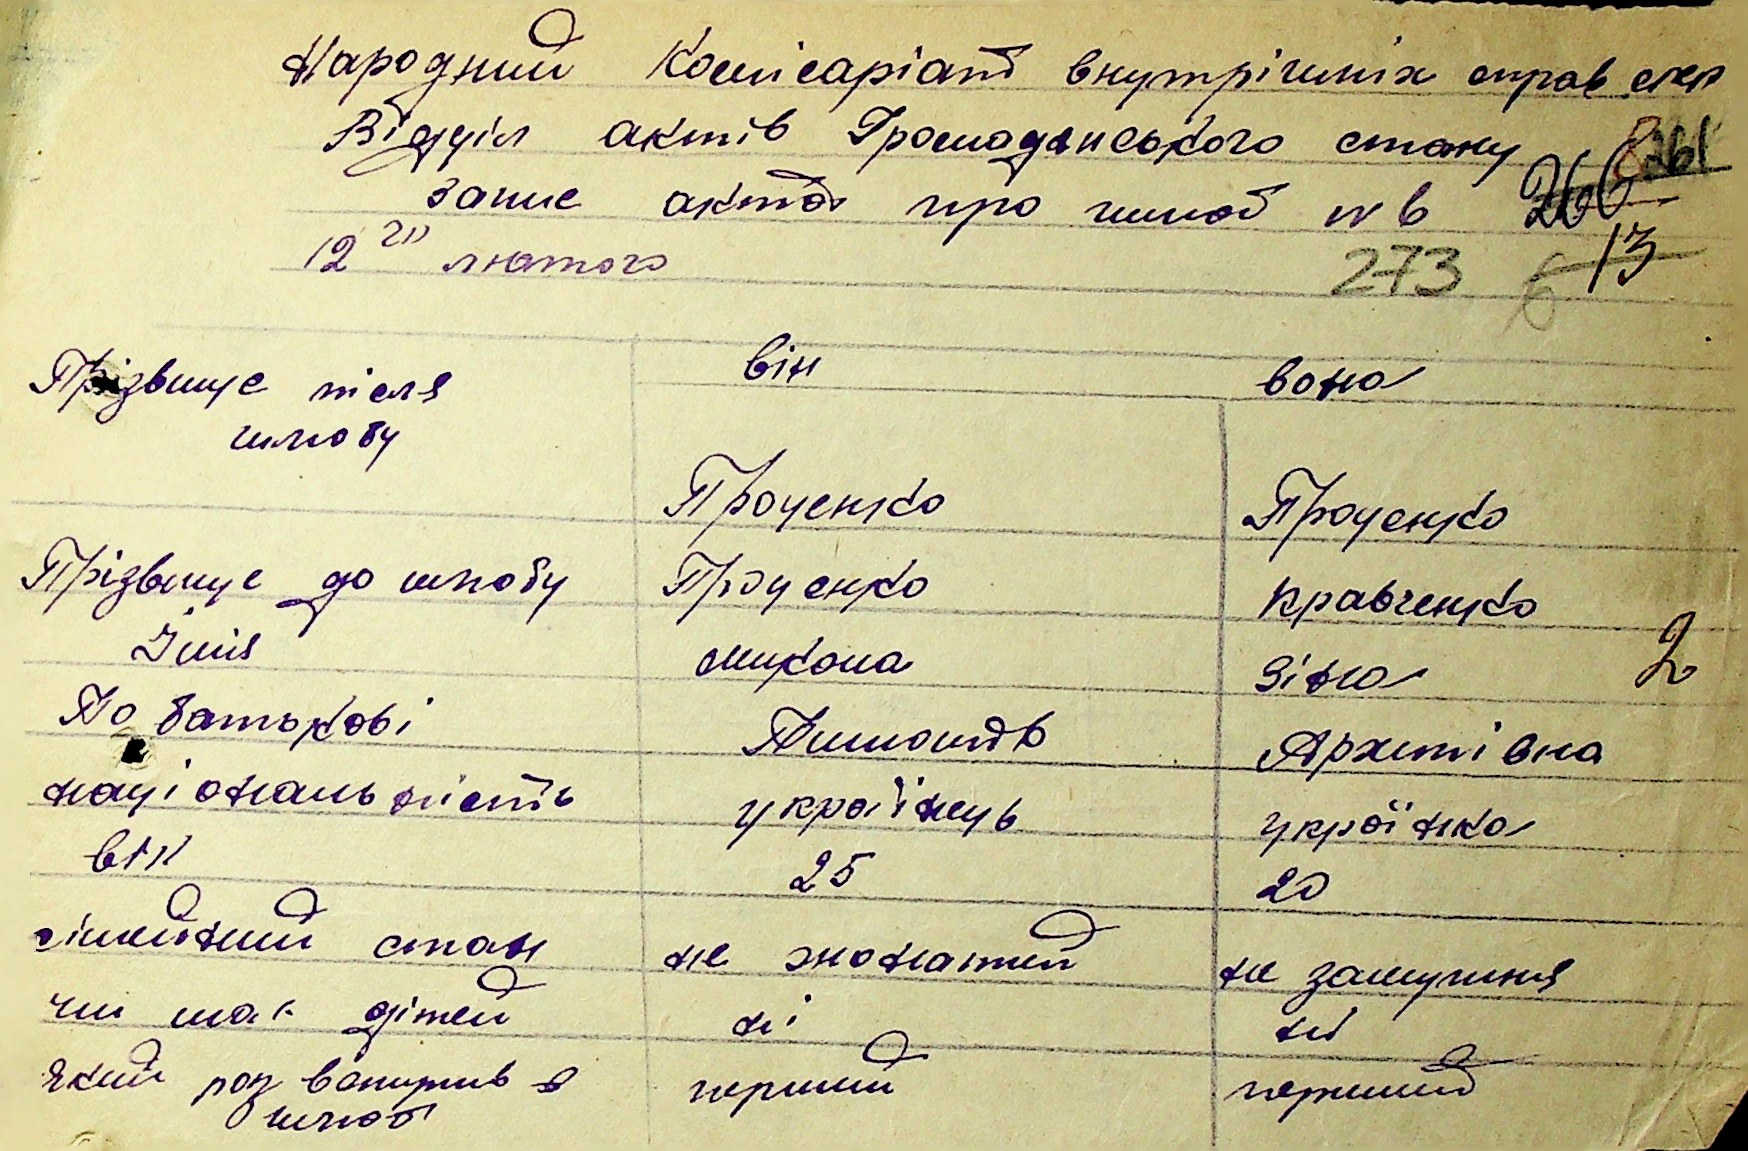 Народний Комісаріат внутрішніх справ
Відділ актів Громадянського стану 261
Запис актів про шлюб №6 266
12го лютого 273 6 13
він вона
Прізвище після
шлюбу
Проценко Проценко
Прізвище до шлюбу Проценко Кравченко
Імія Микола Зіна 2
По батькові Архипівна
національність українець українка
вік 25 20
сімейний стан не жонатий не замужня
чи має дітей ні ні
Який раз вступив в перший перший
шлюб